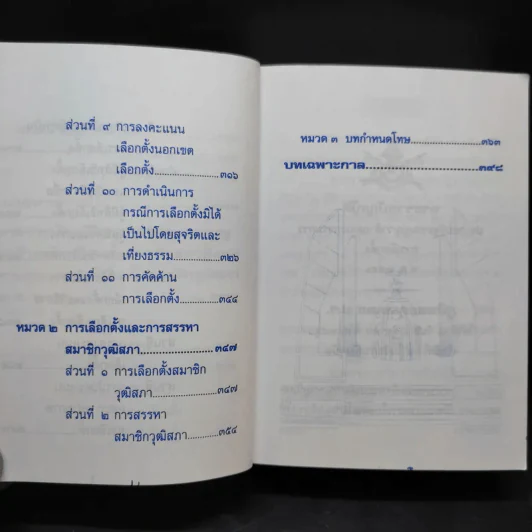 ส่วนที่ ๙ การลงคะแนน
เลือกตั้งนอกเขต
เลือกตั้ง..................๓๑๖
ส่วนที่ ๑๐ การดำเนินการ
กรณีการเลือกตั้งมิได้
เป็นไปโดยสุจริตและ
เที่ยงธรรม..................๓๒๖
ส่วนที่ ๑๑ การคัดค้าน
การเลือกตั้ง..............๓๔๔
หมวด ๒ การเลือกตั้งและการสรรหา
สมาชิกวุฒิสภา......................๓๔๗
ส่วนที่ ๑ การเลือกตั้งสมาชิก
วุฒิสภา....................๓๔๗
ส่วนที่ ๒ การสรรหา
สมาชิกวุฒิสภา..........๓๕๔
หมวด ๓ บทกำหนดโทษ....................๓๖๓
บทเฉพาะกาล..................................๓๙๘